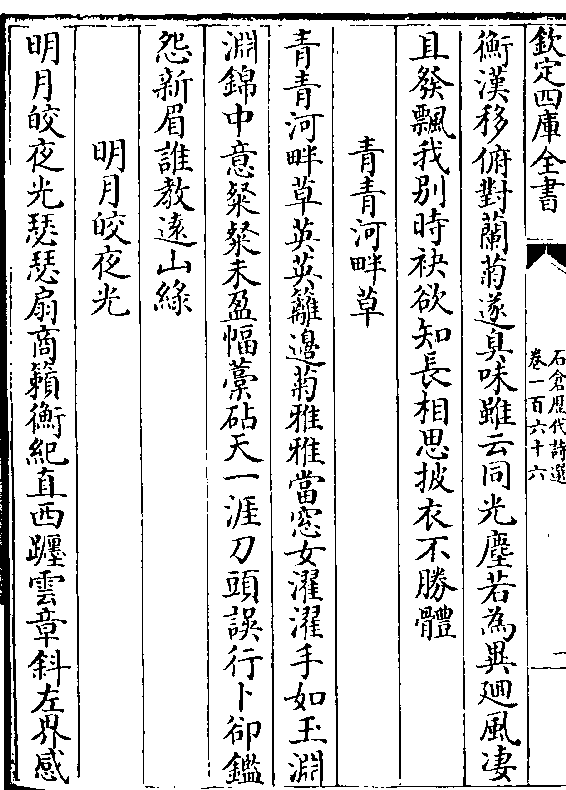 欽定四庫全書
石倉歴代詩選
卷一百六十六
二
衡漢移俯對蘭菊遂臭味雖云同光塵若為異廻風凄
且發飄我别時袂欲知長相思披衣不勝體
青青河畔草
青青河畔草英英籬邉菊雅雅當窓女濯濯手如玉淵
淵錦中意粲粲未盈幅藁砧天一涯刀頭誤行卜卻鑑
怨新眉誰教逺山綠
明月皎夜光
明月皎夜光瑟瑟扇商籟衡紀直西躔雲章斜左界感